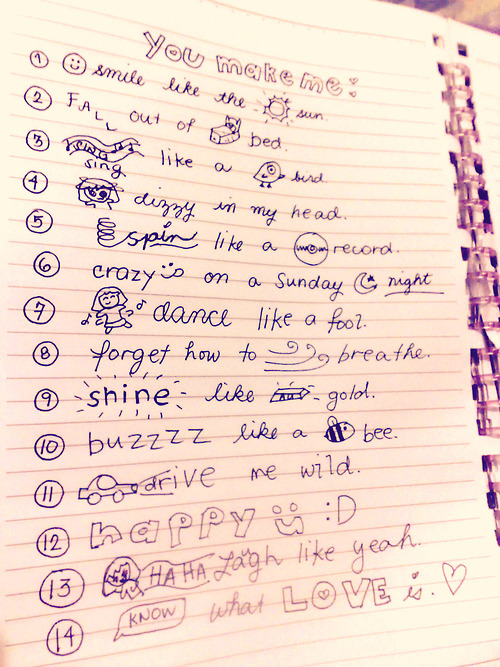 You make me:
1 smile like the sun.
2 FALL out of bed.
3 sing like a bird.
4 dizzy in my head.
5 spin like a record.
6 crazy on a Sunday night
7 dance like a fool.
8 forget how to breathe.
9 shine like gold.
10 buzzzz like a bee.
11 drive me wild.
12 happy :D
13 HAHA Laugh like yeah.
14 KNOW what LOVE is.